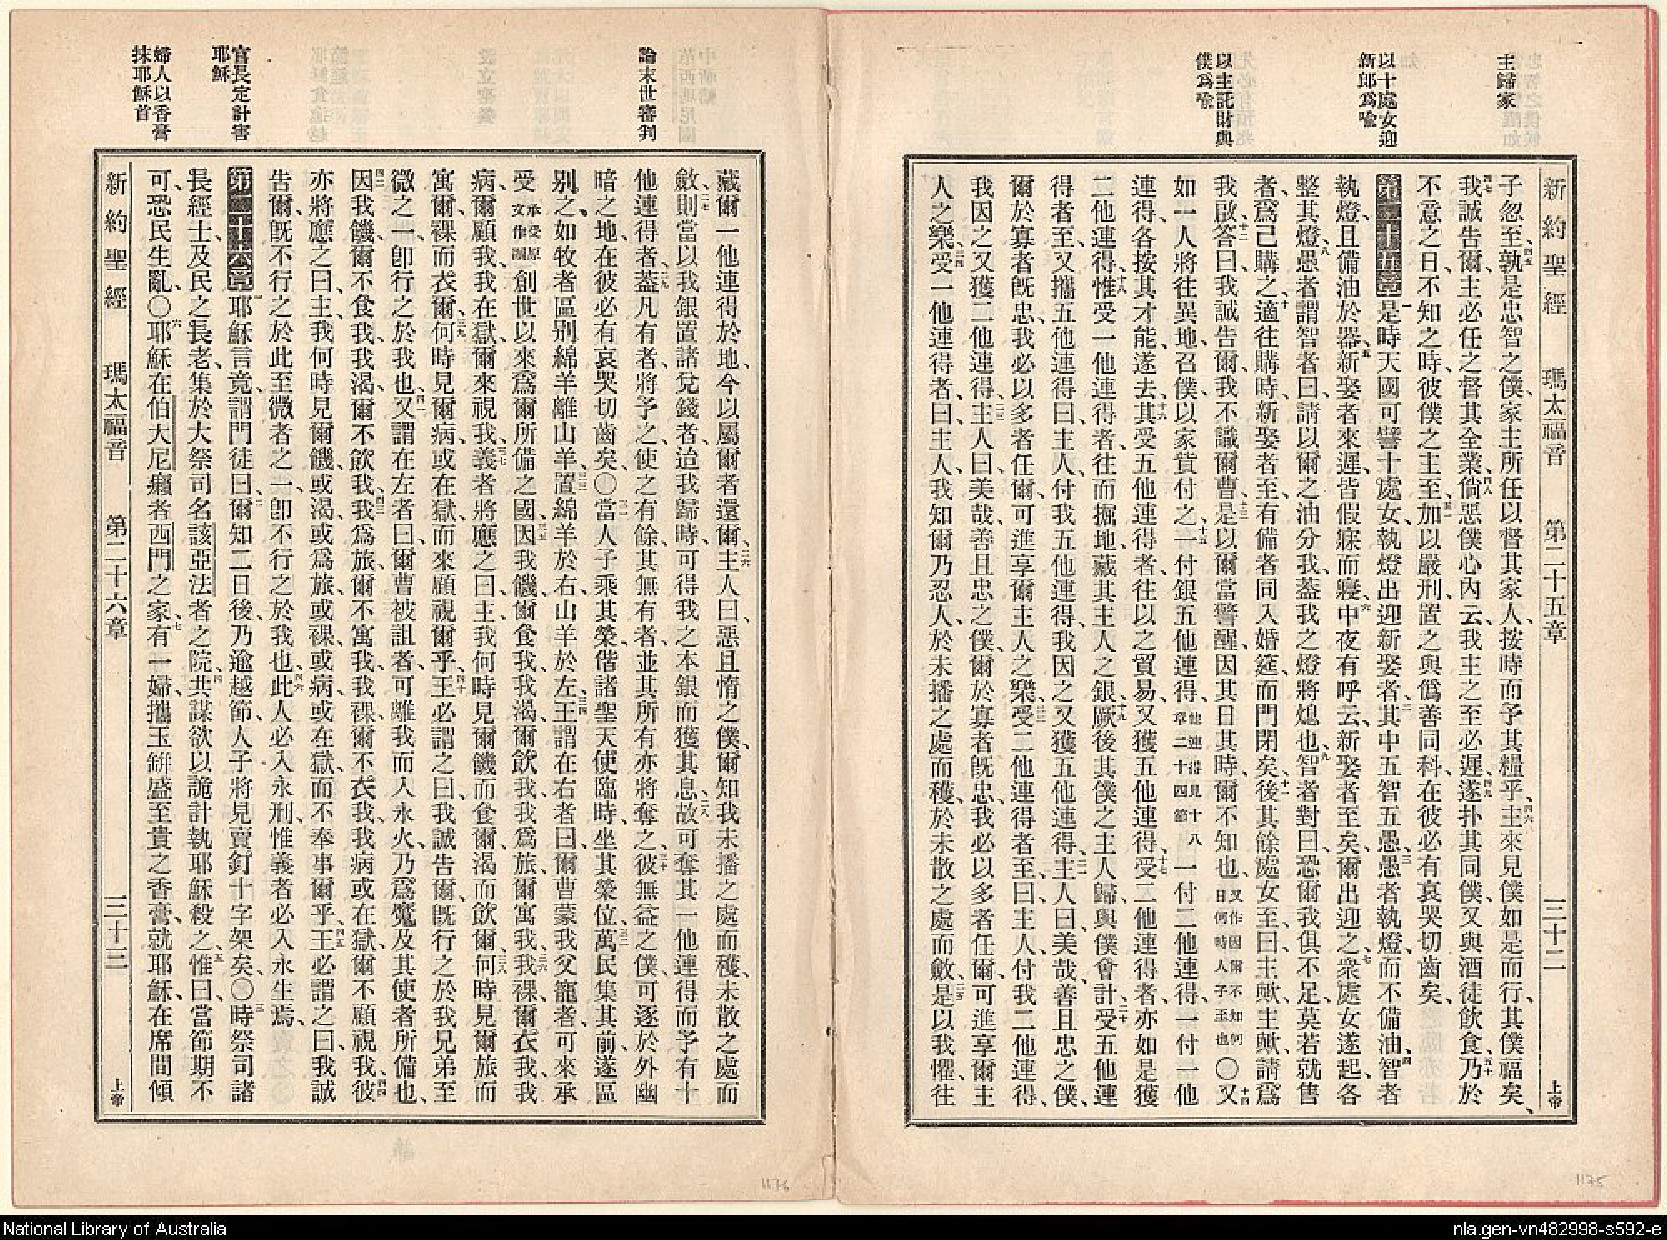 主歸家
以十處女迎
新郎爲喩
以主託財與
僕爲喩
新約聖經 瑪太福音 第二十五章 三十二 上帝
子忽至孰是忠智之僕家主所任以督其家人按時而予其糧乎主來見僕如是而行其僕福矣
我誠吿爾主必任之督其全業倘惡僕心內云我主之至必遲遂扑其同僕又與酒徒飮食乃於
不意之日不知之時彼僕之主至加以嚴刑置之與僞善同科在彼必有哀哭切齒矣
第二十五章是時天國可譬十處女執燈出迎新娶者其中五智五愚愚者執燈而不備油智者
執燈且備油於器新娶者來遲皆假寐而寢中夜有呼云新娶者至矣爾出迎之衆處女遂起各
整其燈愚者謂智者曰請以爾之油分我蓋我之燈將熄也智者對曰恐爾我俱不足莫若就售
者爲己購之適往購時新娶者至有備者同入婚筵而門閉矣後其餘處女至曰主歟主歟請爲
我啟答曰我誠吿爾我不識爾曹是以爾當警醒因其日其時爾不知也又作因爾不知何日何時人子至也〇又
如一人將往異地召僕以家貲付之一付銀五他連得他連得見十八章二十四節一付二他連得一付一他
連得各按其才能遂去其受五他連得者往以之貿易又獲五他連得受二他連得者亦如是獲
二他連得惟受一他連得者往而掘地藏其主人之銀厥後其僕之主人歸與僕會計受五他連
得者至又攜五他連得曰主人付我五他連得我因之又獲五他連得主人曰美哉善且忠之僕
爾於寡者旣忠我必以多者任爾可進享爾主人之樂受二他連得者至曰主人付我二他連得
我因之又獲二他連得主人曰美哉善且忠之僕爾於寡者旣忠我必以多者任爾可進享爾主
人之樂受一他連得者曰主人我知爾乃忍人於未播之處而穫於未散之處而斂是以我懼往
論末世審判
官長定計害
耶穌
婦人以香膏
抹耶穌首
藏爾一他連得於地今以屬爾者還爾主人曰惡且惰之僕爾知我未播之處而穫未散之處而
斂則當以我銀置諸兌錢者迨我歸時可得我之本銀而獲其息故可奪其一他連得而予有十
他連得者蓋凡有者將予之使之有餘其無有者並其所有亦將奪之彼無益之僕可逐於外幽
暗之地在彼必有哀哭切齒矣〇當人子乘其榮偕諸聖天使臨時坐其榮位萬民集其前遂區
別之如牧者區別綿羊離山羊置綿羊於右山羊於左王謂在右者曰爾曹蒙我父寵者可來承
受承受原文作嗣創世以來爲爾所備之國因我饑爾食我我渴爾飮我我爲旅爾寓我我裸爾衣我我
病爾顧我我在獄爾來視我義者將應之曰主我何時見爾饑而食爾渴而飮爾何時見爾旅而
寓爾裸而衣爾何時見爾病或在獄而來顧視爾乎王必謂之曰我誠吿爾旣行之於我兄弟至
微之一卽行之於我也又謂在左者曰爾曹被詛者可離我而入永火乃爲魔及其使者所備也
因我饑爾不食我我渴爾不飮我我爲旅爾不寓我我裸爾不衣我我病或在獄爾不顧視我彼
亦將應之曰主我何時見爾饑或渴或爲旅或裸或病或在獄而不奉事爾乎王必謂之曰我誠
吿爾旣不行之於此至微者之一卽不行之於我也此人必入永刑惟義者必入永生焉
第二十六章耶穌言竟謂門徒曰爾知二日後乃逾越節人子將見賣釘十字架矣〇時祭司諸
長經士及民之長老集於大祭司名該亞法者之院共謀欲以詭計執耶穌殺之惟曰當節期不
可恐民生亂〇耶穌在伯大尼癩者西門之家有一婦攜玉缾盛至貴之香膏就耶穌在席間傾
新約聖經 瑪太福音 第二十六章 三十三 上帝
1176
1175
National Library of Australia
nla.gen-vn482998-s592-e